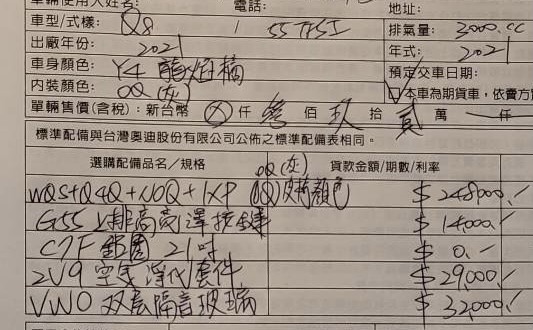 車輛使用人姓名: 電話: 地址:
車型/式樣: Q8 / 55 TFSI 排氣量: 3000.cc
出廠年份: 2021 年式: 2021
車身顏色: Y4 龍焰橘 預定交車日期:
內裝顏色: OQ (灰) 本車為期貨車,依賣方
單輛售價(含稅): 新台幣 ⊗ 仟 叁 佰 玖 拾 貳 萬 仟
標準配備與台灣奧迪股份有限公司公佈之標準配備表相同。
選購配備品名/規格 貨款金額/期數/利率
OQ (灰)
WQS+Q4Q+N0Q+1XP 皮椅顏色 $ 248,000.-
G55 上排高亮澤按鍵 $ 14,000.-
C7F 鋁圈 21吋 $ 0.-
2V9 空氣淨化套件 $ 29,000.-
VW0 双層隔音玻璃 $ 32,000.-